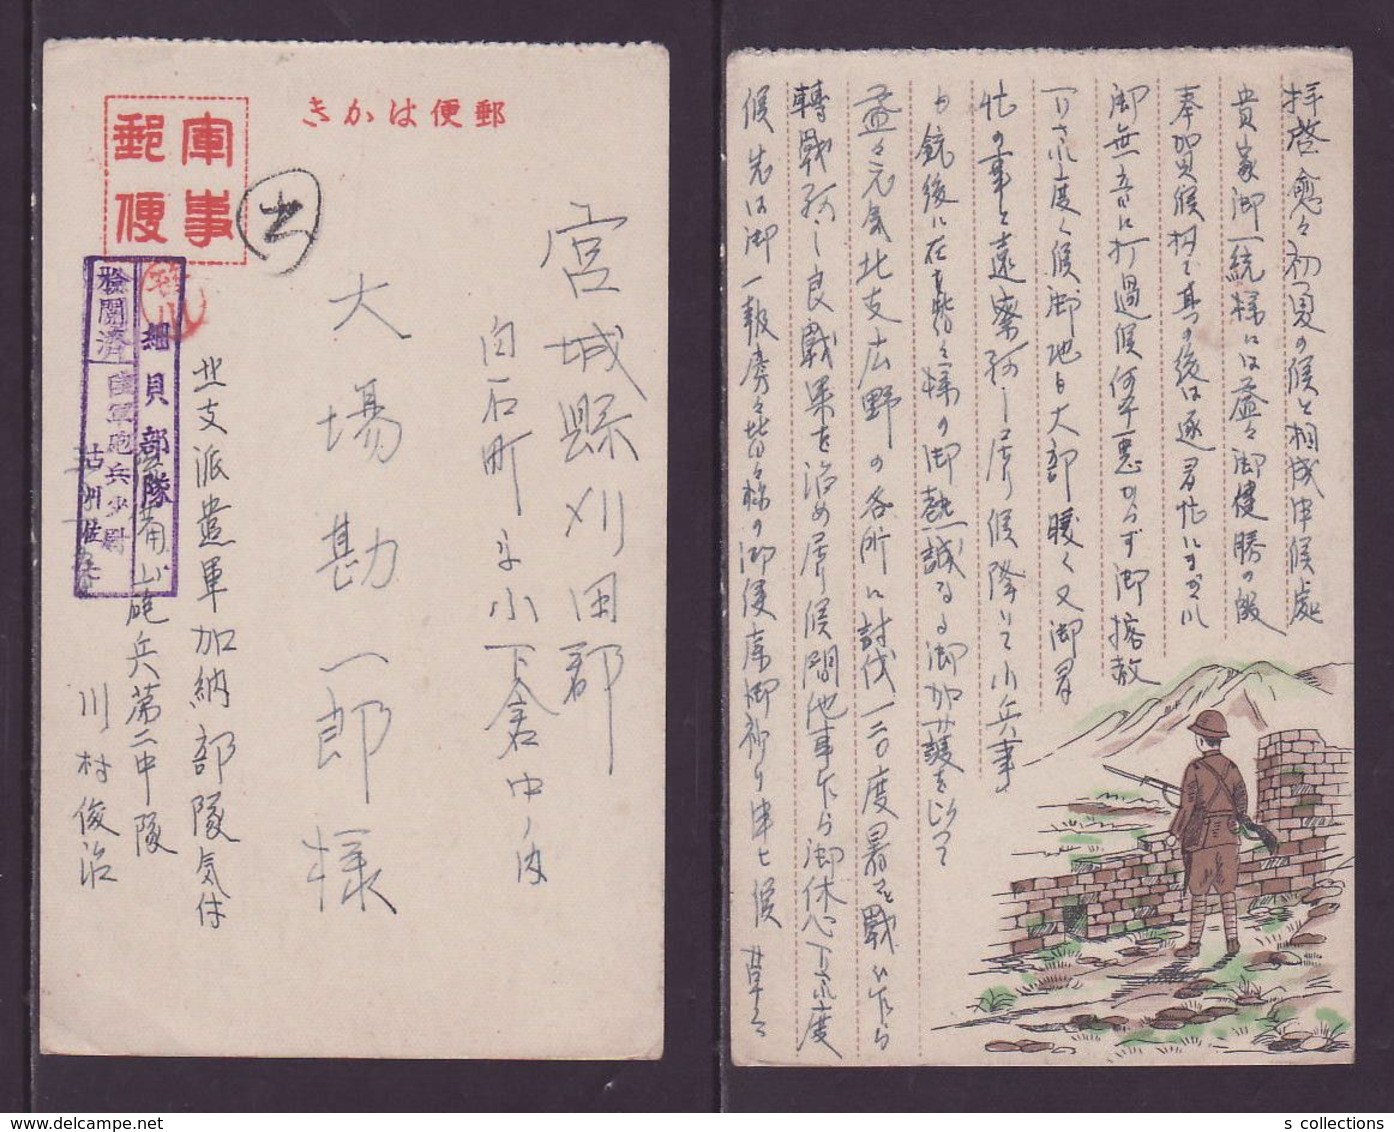 郵便はかき
軍事
郵便
宮城縣刈田郡
白石町字小下倉中ノ内
大場勘一郎様
北支派遣軍加納部隊気付
細貝部隊
山砲兵第二中隊
川村俊治
検閲済
陸軍砲兵少尉
拝啓愈々初夏の候と相成申候處
貴家御一統様には益々御健勝の段
奉賀候 其の後は遂
御無音に打過候何卒悪からず御容赦
下され度く候御地も大部暖く又御
忙の事と遠察致し居り候降いて小兵事
も銃後に在る皆々様の御熱誠なる御加護を以って
益々元気北支広野の各所に討伐
轉戦致し良戦果を治め居り候間他事乍ら御休心下され度
候先は御一報旁々皆々様の御健康御祈り申上候 草々
s collections